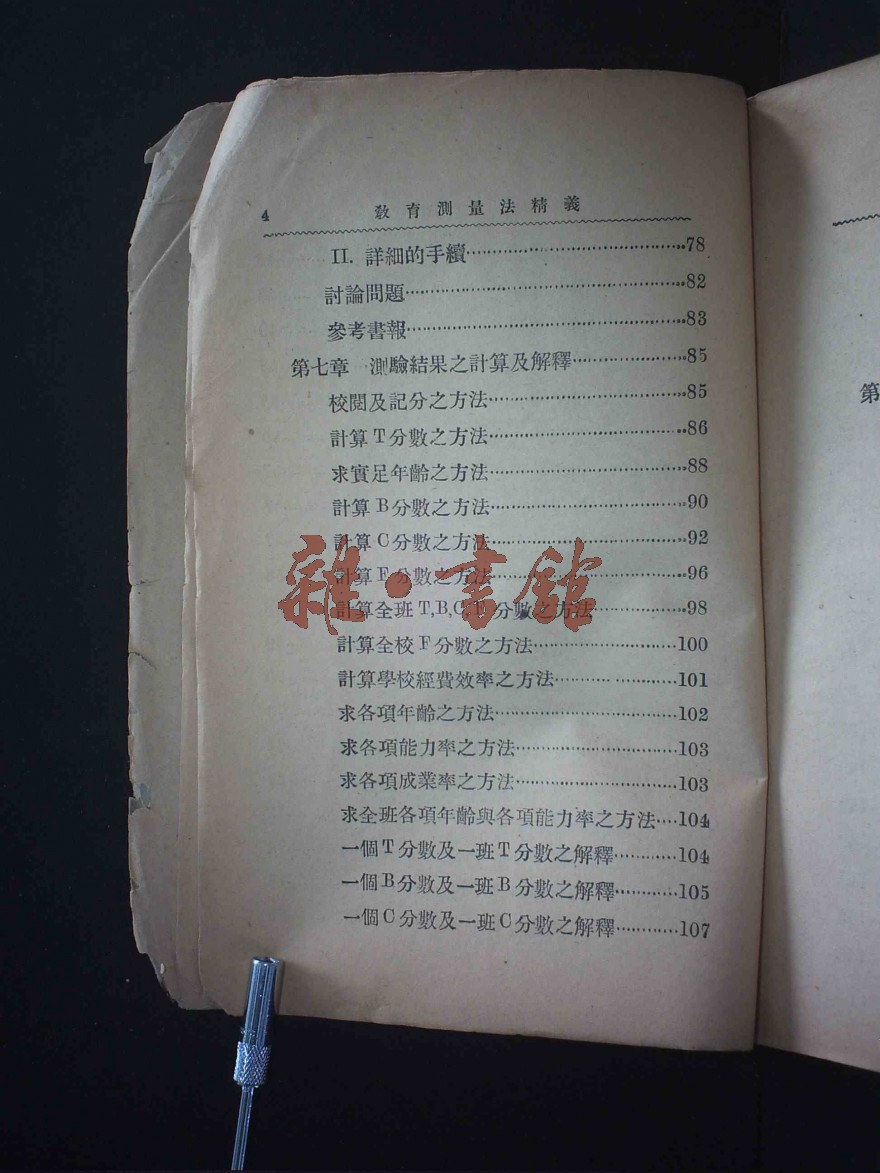 4 敎育測量法精義
II. 詳細的手續……78
討論問題……82
參考書報……83
第七章 測驗結果之計算及解釋……85
校閱及記分之方法……85
計算T分數之方法……86
求實足年齡之方法……88
計算B分數之方法……90
計算C分數之方法……92
計算F分數之方法……96
計算全班T,B,C,F分數之方法……98
計算全校F分數之方法……100
計算學校經費效率之方法……101
求各項年齡之方法……102
求各項能力率之方法……103
求各項成業率之方法……103
求全班各項年齡與各項能力率之方法……104
一個T分數及一班T分數之解釋……104
一個B分數及一班B分數之解釋……105
一個C分數及一班C分數之解釋……107
雜·書館
第